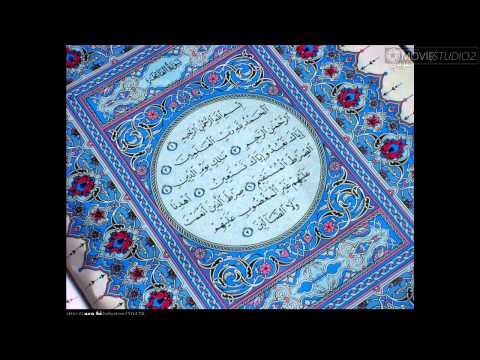 MOVIESTUDIO2
سُورَةُ الفَاتِحَةِ
بِسْمِ اللَّهِ الرَّحْمَٰنِ الرَّحِيمِ
الْحَمْدُ لِلَّهِ رَبِّ الْعَالَمِينَ
الرَّحْمَٰنِ الرَّحِيمِ مَالِكِ يَوْمِ الدِّينِ
إِيَّاكَ نَعْبُدُ وَإِيَّاكَ نَسْتَعِينُ اهْدِنَا
الصِّرَاطَ الْمُسْتَقِيمَ صِرَاطَ الَّذِينَ أَنْعَمْتَ
عَلَيْهِمْ غَيْرِ الْمَغْضُوبِ عَلَيْهِمْ
وَلَا الضَّالِّينَ